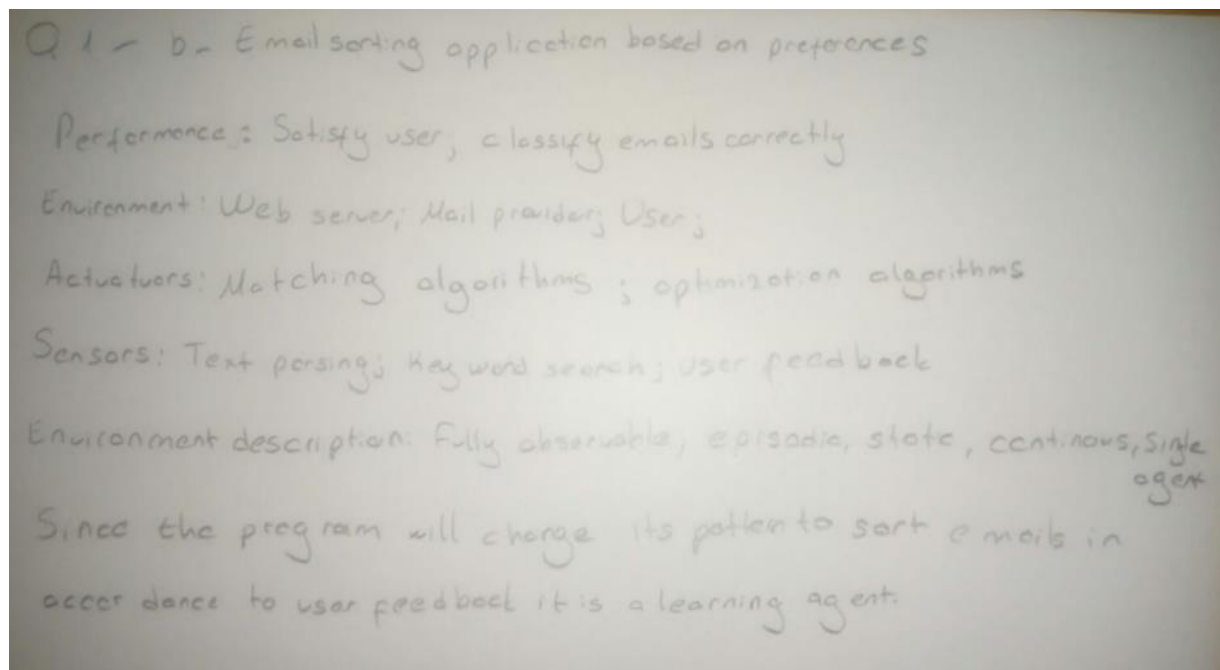 Q 1 - b- Email sorting application based on preferences
Performance: Satisfy user, classify emails correctly
Environment: Web server; Mail provider; User;
Actuatuors: Matching algorithms ; optimization algorithms
Sensors: Text parsing; Key word search; user feedback
Environment description: Fully observable, episodic, static, continous, Single
agent
Since the program will change its patten to sort emails in
accordance to user feedback it is a learning agent.